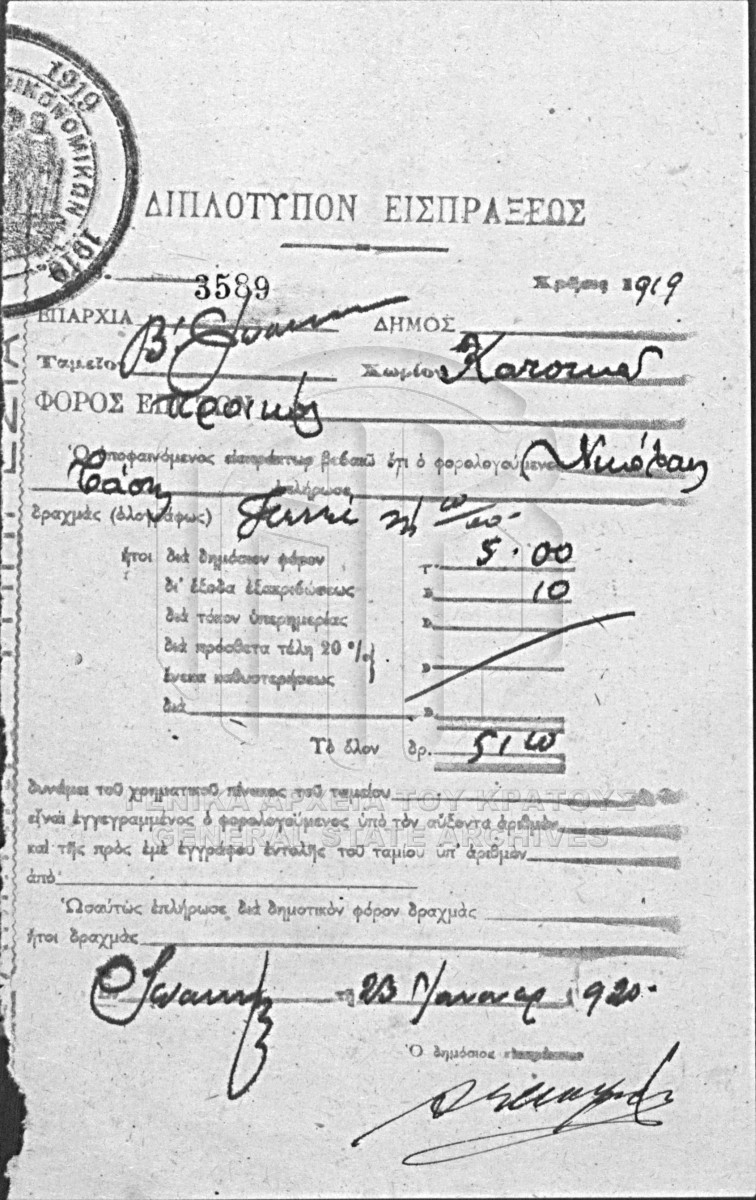 1919
ΙΚΟΝΟΜΙΚΩΝ
1919
ΔΙΠΛΟΤΥΠΟΝ ΕΙΣΠΡΑΞΕΩΣ
3589
Χρῆσις 1919
ΕΠΑΡΧΙΑ
ΔΗΜΟΣ
Ταμεῖον Β'
Χωρίον
ΦΟΡΟΣ
Ὁ ὑποφαινόμενος εἰσπράκτωρ βεβαιῶ ὅτι ὁ φορολογούμενος Νικόλαος
ἐπλήρωσε
δραχμὰς (ὁλογράφως) πέντε
ἤτοι διὰ δημόσιον φόρον 5.00
δι' ἔξοδα ἐξακριβώσεως 10
διὰ τόκον ὑπερημερίας
διὰ πρόσθετα τέλη 20 %
ἕνεκα καθυστερήσεως
διὰ
Τὸ ὅλον δρ. 5 10
δυνάμει τοῦ χρηματικοῦ πίνακος τοῦ ταμείου
ΓΕΝΙΚΑ ΑΡΧΕΙΑ ΤΟΥ ΚΡΑΤΟΥΣ
εἶναι ἐγγεγραμμένος ὁ φορολογούμενος ὑπὸ τὸν αὔξοντα ἀριθμὸν
GENERAL STATE ARCHIVES
καὶ τῆς πρὸς ἐμὲ ἐγγράφου ἐντολῆς τοῦ ταμίου ὑπ' ἀριθμὸν
ἀπὸ
Ὡσαύτως ἐπλήρωσε διὰ δημοτικὸν φόρον δραχμὰς
ἤτοι δραχμὰς
τῇ 23 Ἰανουαρ 1920.
Ὁ δημόσιος εἰσπράκτωρ